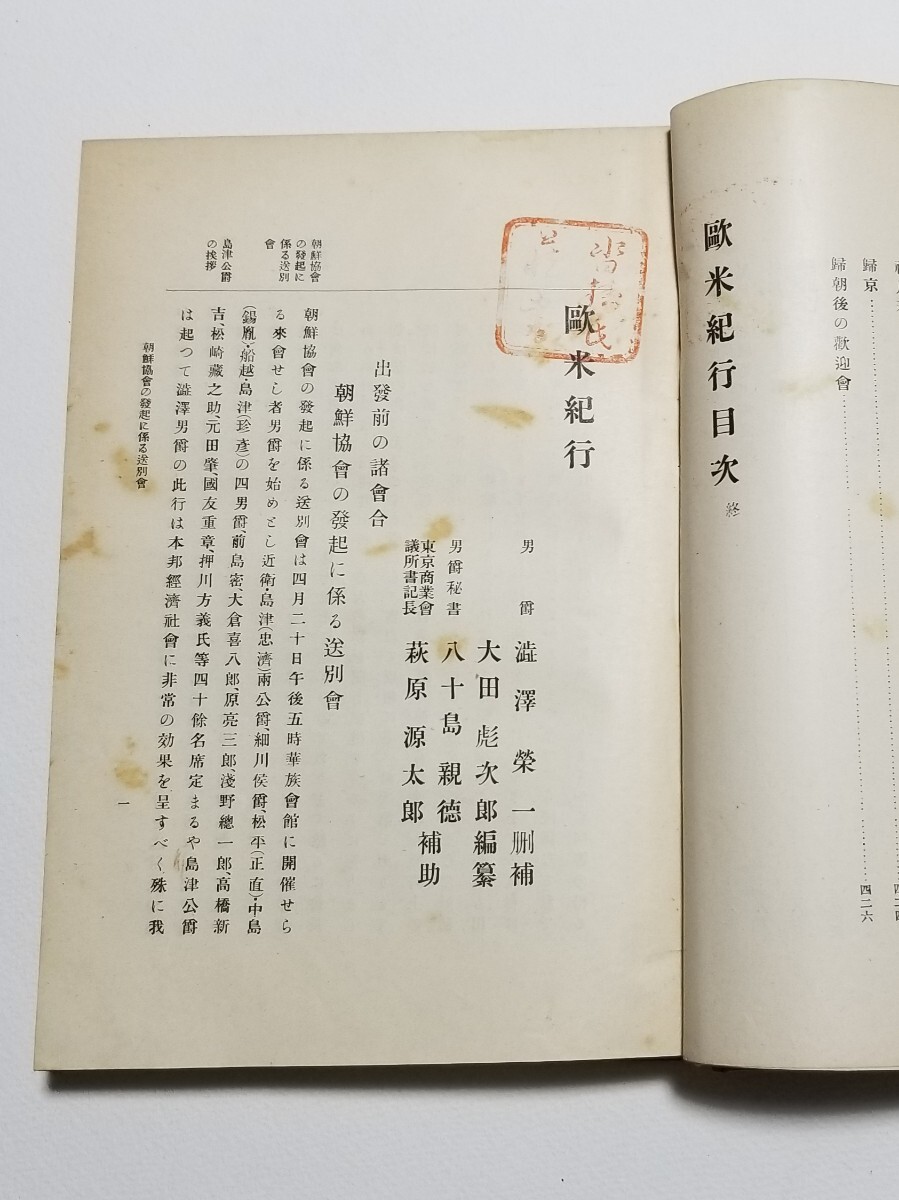 歸京……四二六
歸朝後の歡迎會
歐米紀行目次 終
歐米紀行
男爵 澁澤榮一刪補
大田彪次郎編纂
男爵秘書 八十島親德
東京商業會議所書記長 萩原源太郎
補助
出發前の諸會合
朝鮮協會の發起に係る送別會
朝鮮協會の發起に係る送別會
朝鮮協會の發起に係る送別會は四月二十日午後五時華族會館に開催せら
る來會せし者男爵を始めとし近衛・島津(忠濟)兩公爵、細川侯爵、松平(正直)・中島
(錫胤)・船越・島津(珍彥)の四男爵、前島密、大倉喜八郎、原亮三郎、淺野總一郎、高橋新
吉、松崎藏之助、元田肇、國友重章、押川方義氏等四十餘名席定まるや島津公爵
島津公爵の挨拶
は起つて澁澤男爵の此行は本邦經濟社會に非常の効果を呈すべく殊に我
朝鮮協會の發起に係る送別會
一